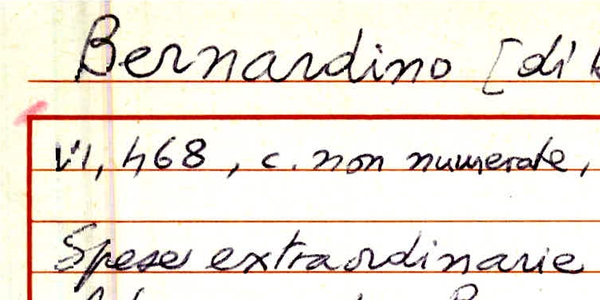 Bernardino [di
VI, 468, c. non numerate,
Spese extraordinarie